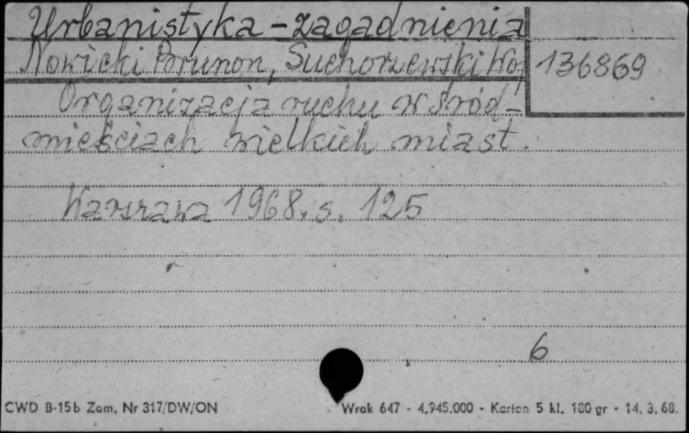 Urbanistyka - zagadnienia
Nowicki Brunon, Suchorzewski Wo,
136869
Organizacja ruchu w śród-
mieściach wielkich miast.
Warszawa 1968. s. 125
6
CWD B-15b Zam. Nr 317/DW/ON Wrak 647 - 4.945.000 - Karton 5 kl. 180 gr - 14. 3. 68.